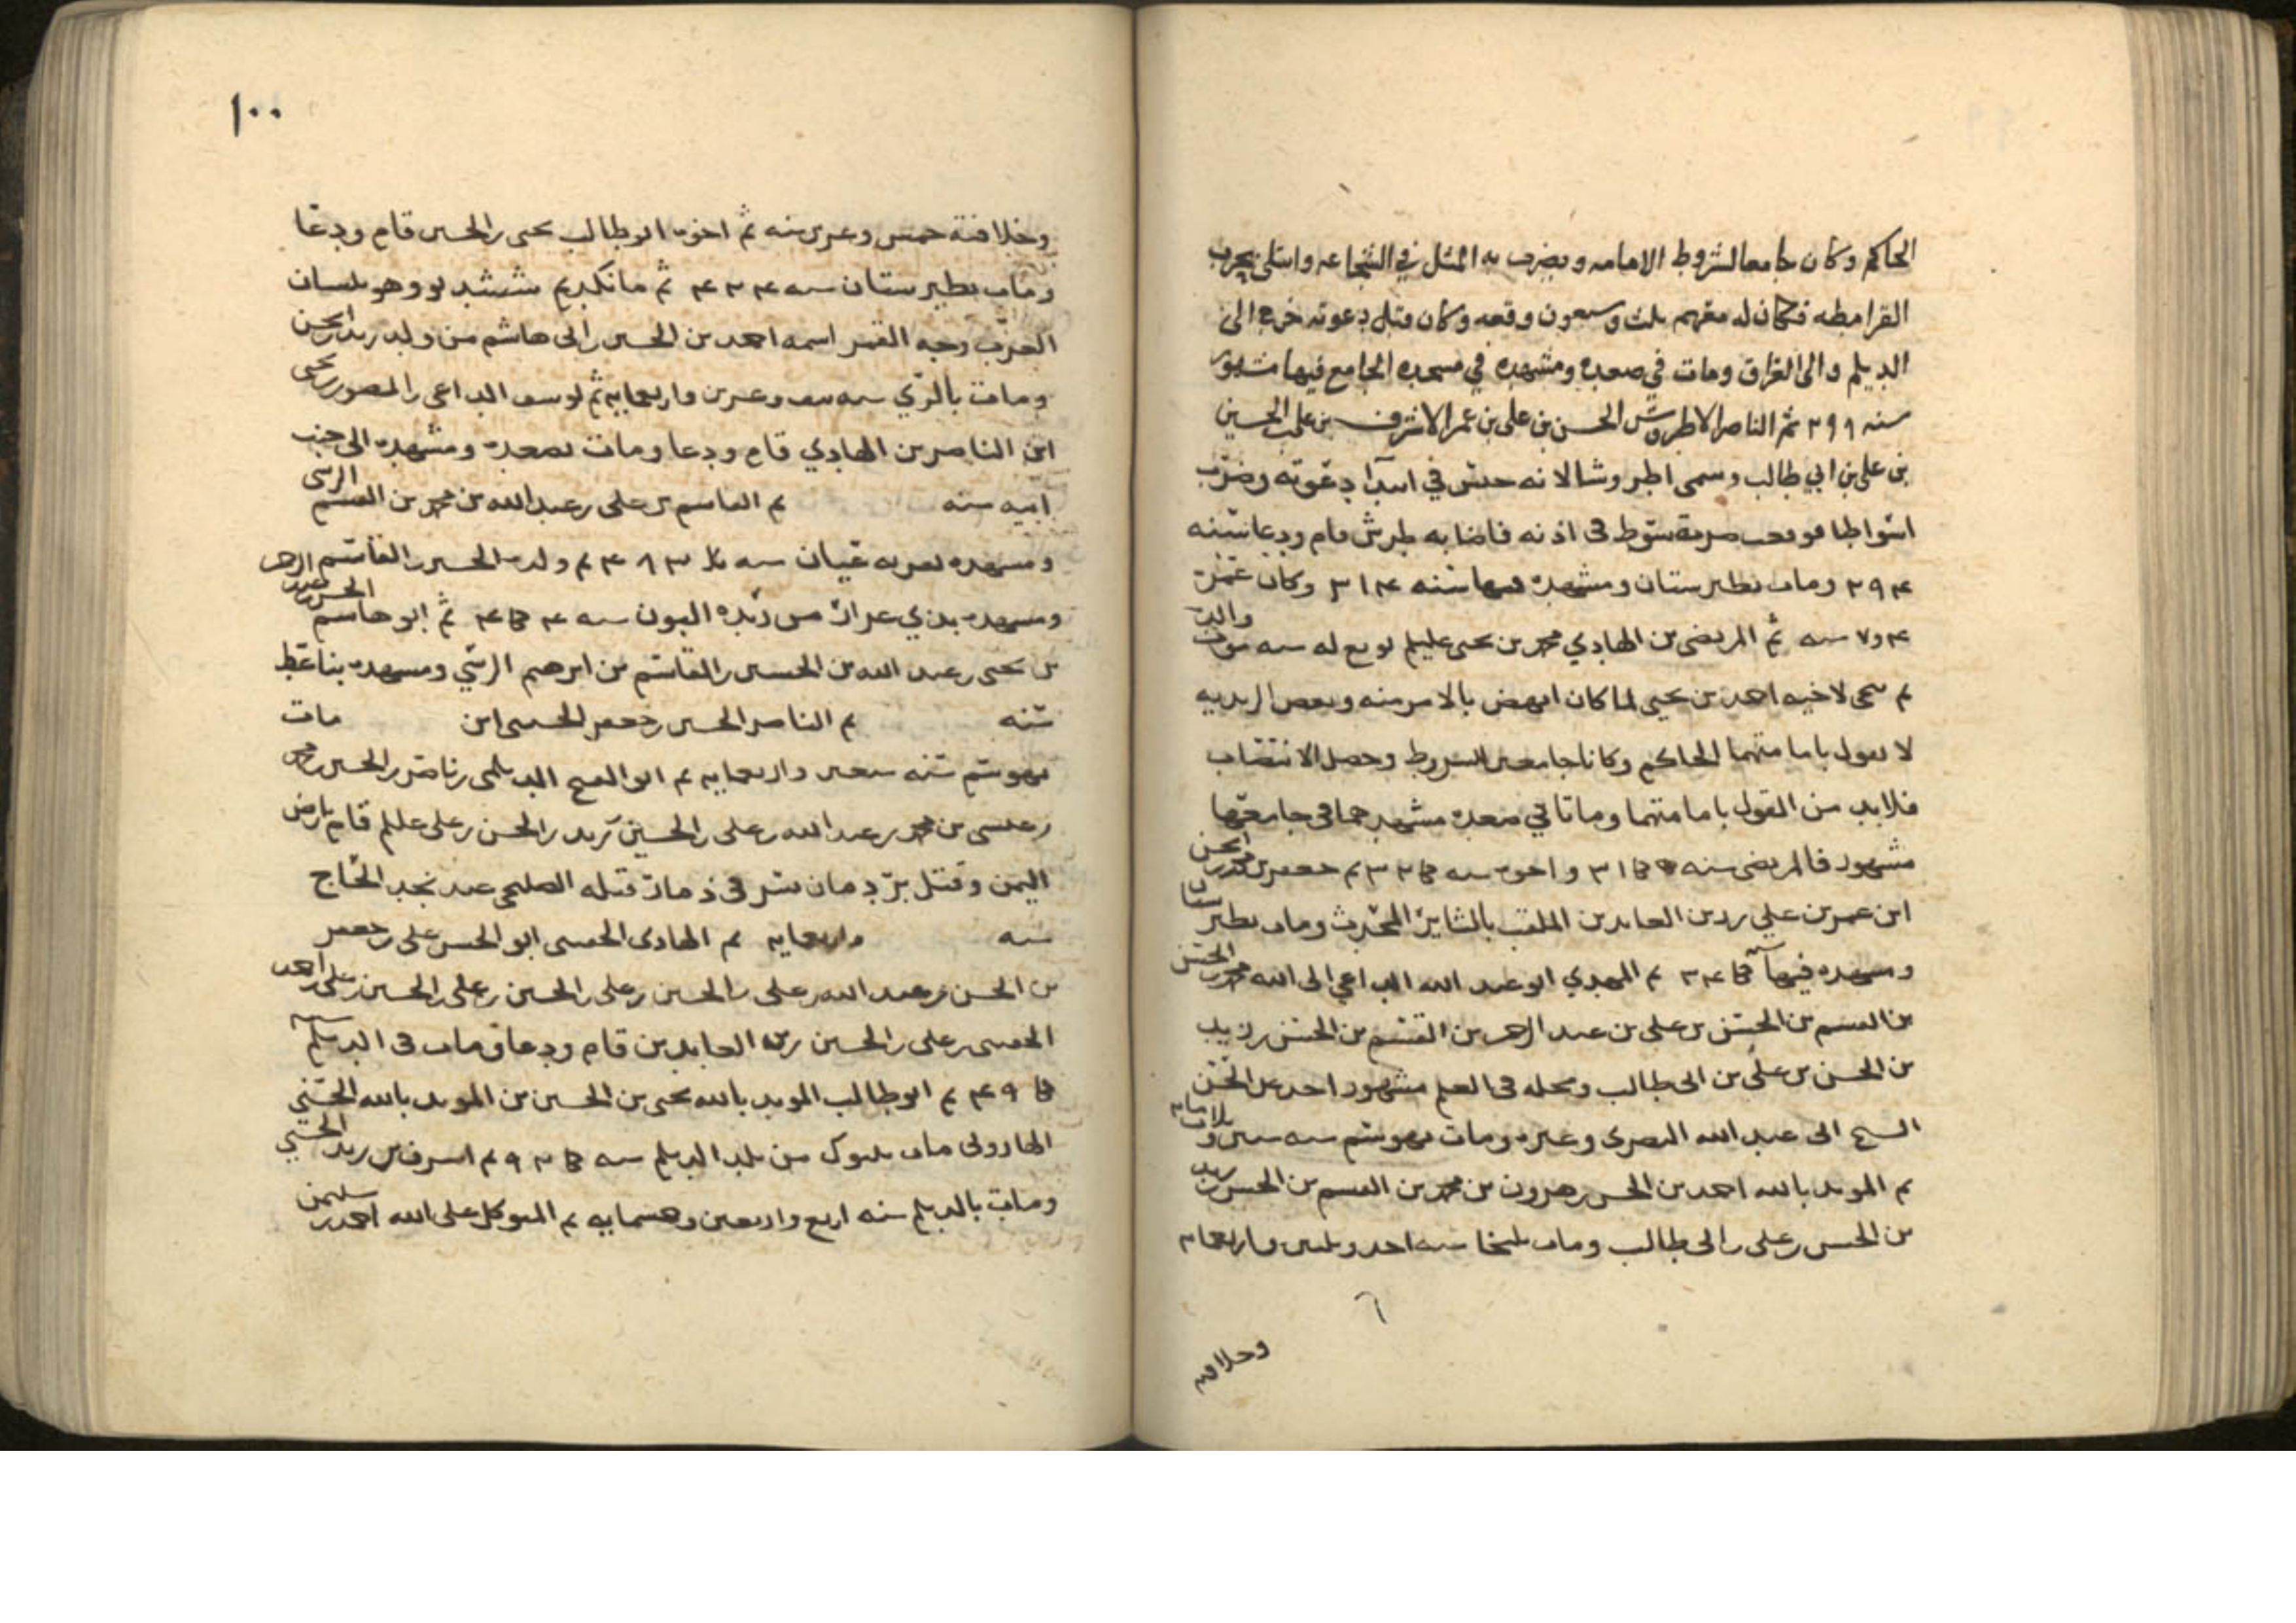 الحاكم وكان جامعا لشروط الامامه ويضرب به المثل في الشجاعه وابتلى بحرب
القرامطه فكان له معهم ثلث وسبعون وقعه وكان قبل دعوته خرج الى
الديلم والى العراق ومات في صعده ومشهده في مسجده الجامع فيها مشهور
سنه ٢٩٩ ثم الناصر الاطروش الحسن بن على بن عمر الاشرف بن على بن الحسين
بن على بن ابي طالب وسمى اطروشا لانه حبس في ابتدآ دعوته وضرب
اسواطا فوقعت ضربة سوط في اذنه فاصابه طرش قام ودعا سنه
٢٩٤ ومات بطبرستان ومشهده فيها سنه ٣١٤ وكان عمره
٧٤ سنه ثم المرتضى بن الهادي محمد بن يحيى عليلم بويع له سنه موت والده
ثم تنحى لاخيه احمد بن يحيى لما كان انهض بالامر منه وبعض الزيديه
لا يقول بامامتهما الحاكم وكانا جامعين الشروط وحصل الانتصاب
فلا بد من القول بامامتهما وماتا في صعده مشهدهما في جامعها
مشهور فالمرتضى سنه ٣١٥ واخوه سنه ٣٢٥ ثم جعفر بن محمد بن الحسن
ابن عمر بن علي زين العابدين الملقب بالثاير المحدث ومات بطبرستان
ومشهده فيها ٣٤٥ ثم المهدي ابو عبد الله الداعي الى الله محمد بن الحسن
بن القسم بن الحسن بن على بن عبد الرحمن بن القسم بن الحسن بن زيد
بن الحسن بن علي بن ابى طالب ومحله في العلم مشهور اخذ عن
الشيخ ابى عبد الله البصرى وغيره ومات بهوسم سنه ستين وثلاثمايه
ثم المويد بالله احمد بن الحسين بن هرون بن محمد بن القسم بن الحسن بن زيد
بن الحسن بن على بن ابى طالب ومات سنه احد واربعمايه
وخلافته
١٠٠
وخلافته خمس وعشرين سنه ثم اخوه ابو طالب يحيى بن الحسين قام ودعا
ومات بطبرستان سنه ٤٢٤ ثم مانكديم ششديو وهو بلسان
العرب وجه القمر اسمه احمد بن الحسين بن ابى هاشم من ولد زيد بن الحسن
ومات بالري سنه وعشرين واربعمايه ثم يوسف الداعى بن المنصور يحيى
ابن الناصر بن الهادي قام ودعا ومات بصعده ومشهده الى جنب
ابيه سنه ثم القاسم بن على بن عبد الله بن محمد بن القسم الرسى
ومشهده بقريه عيان سنه ٣٩٣ ثم ولده الحسين بن القاسم
ومشهده بذي عرار من ريده البون سنه ٤٠٤ ثم ابو هاشم الحسن بن عبد الرحمن
بن يحيى بن عبد الله بن الحسين بن القاسم بن ابرهيم الرسي ومشهده بناعط
سنه ثم الناصر الحسين بن جعفر الحسنى ابن مات
بهوسم سنه سبعين واربعمايه ثم ابو الفتح الديلمى بن ناصر بن الحسين بن محمد
بن عيسى بن محمد بن عبد الله بن على بن الحسين بن زيد بن الحسن بن على عليلم قام بارض
اليمن وقتل بردمان في ذمار قتله الصليحى عند نجد الحاج
سنه واربعمايه ثم الهادى الحسنى ابو الحسن على بن جعفر
بن الحسن بن عبد الله بن على بن الحسين بن على بن الحسين بن على بن الحسين بن على بن احمد
الحسنى بن على بن الحسين بن زين العابدين قام ودعا ومات فى الديلم
٤٩٥ ثم ابو طالب المويد بالله يحيى بن الحسين بن المويد بالله الحسني
الهارونى مات من بلد الديلم سنه ثم اشرف بن زيد الحسني
ومات بالديلم سنه اربع واربعين وخمسمايه ثم المتوكل على الله احمد بن سليمن